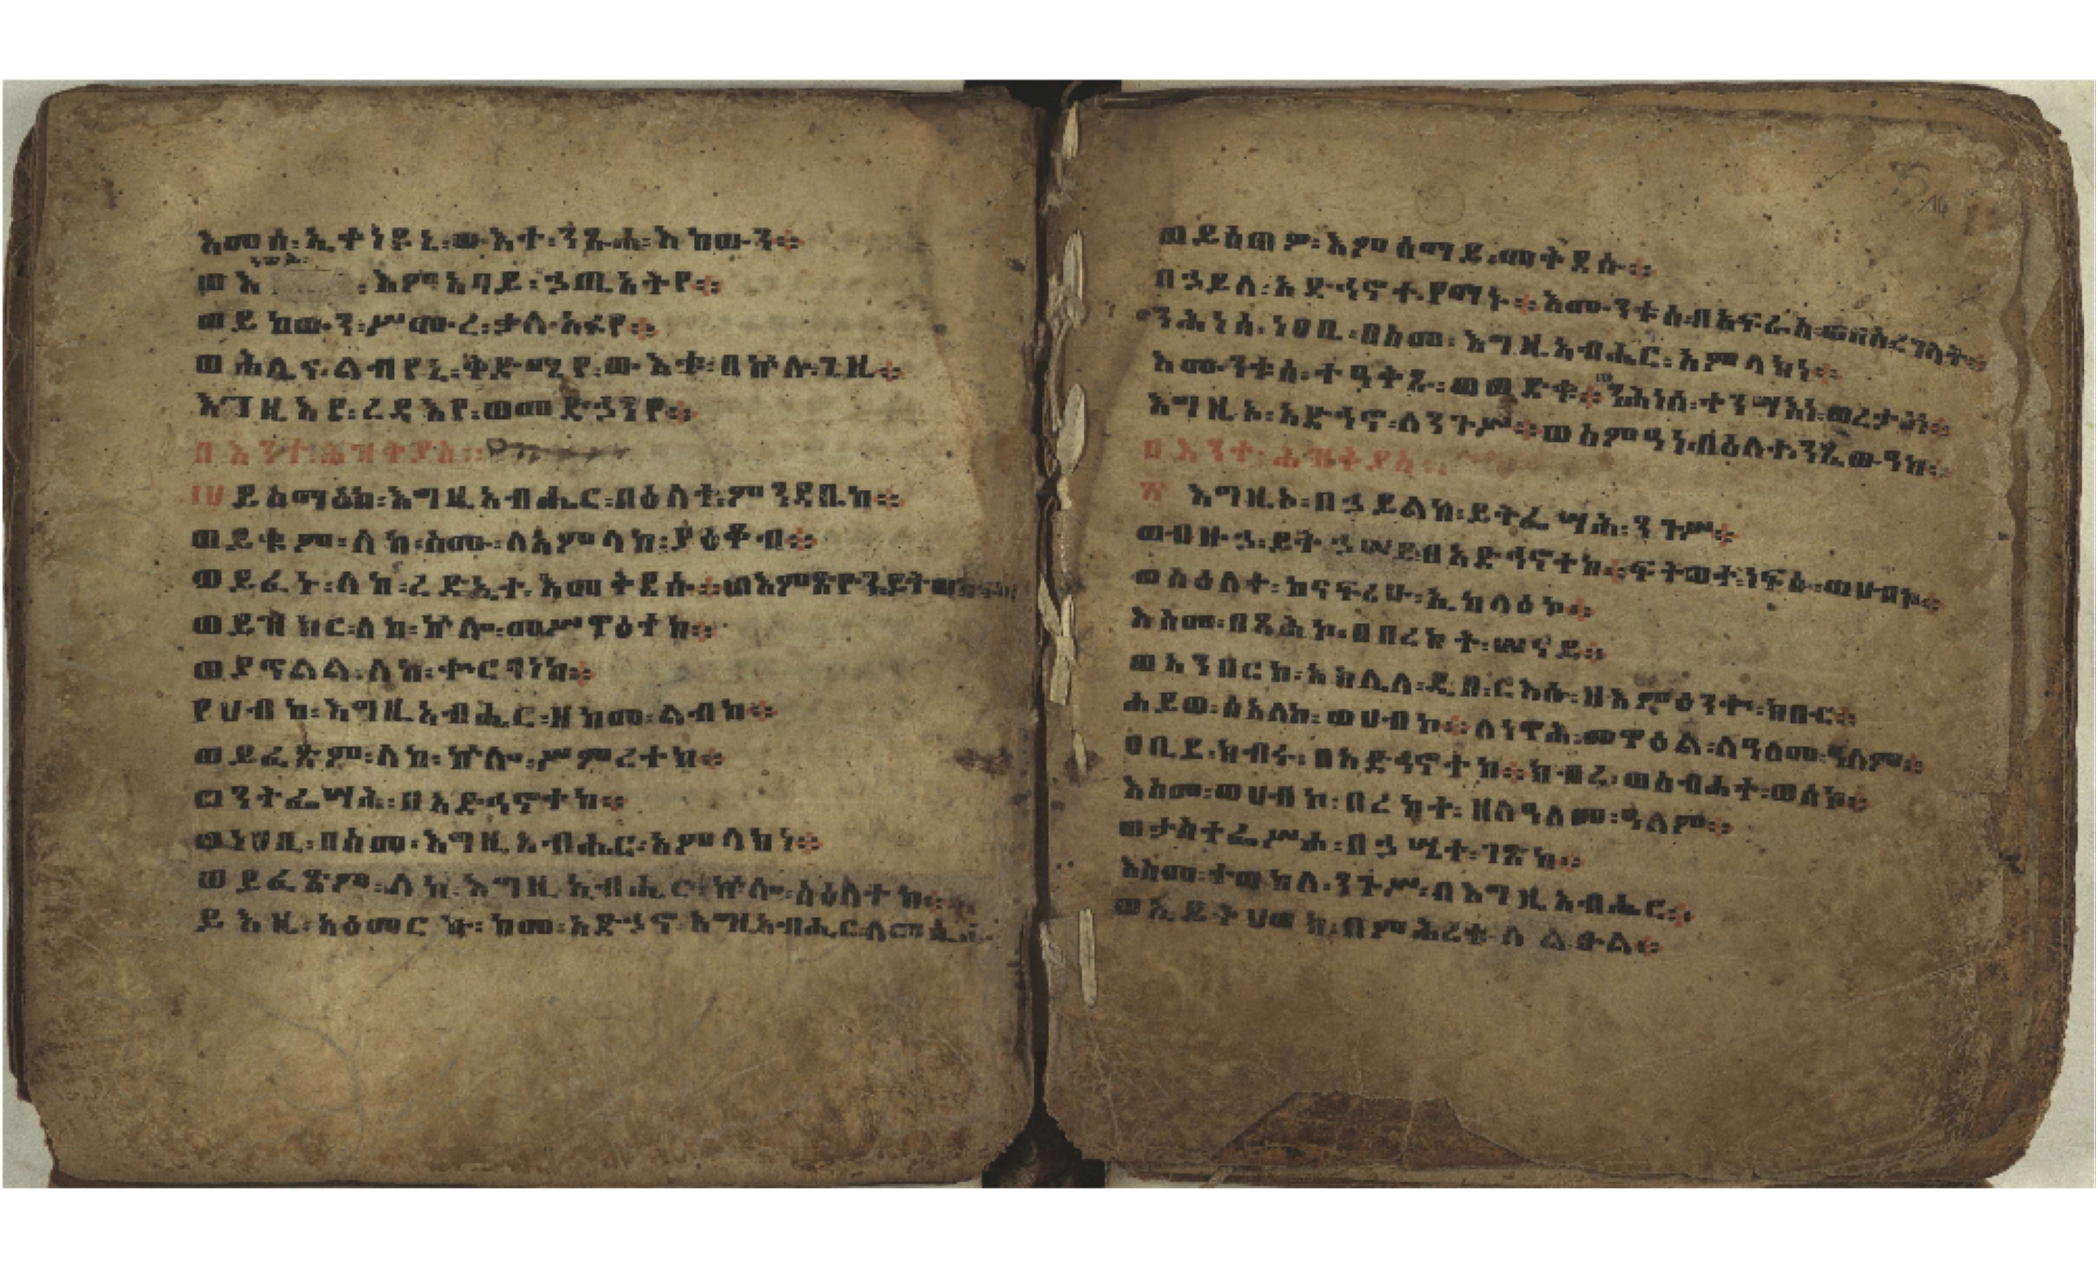 እመሰ፡ኢተነደኒ፡ውእተ፡ንጹሐ፡እከውን።
ወእ ፡እምአባይ፡ኃጢአትየ።
ወይከውን፡ሥሙረ፡ቃለ፡አፉየ።
ወሕሊና፡ልብየኒ፡ቅድሜየ፡ውእቱ፡በኵሉ፡ጊዜ።
እግዚአየ፡ረዳእየ፡ወመድኃንየ።
በእንተ፡ሕዝቅያስ።
፲፱ ይስማዕከ፡እግዚአብሔር፡በዕለቱ፡ምንዳቤከ።
ወይቁም፡ለከ፡ስሙ፡ለአምላከ፡ያዕቆብ።
ወይፈኑ፡ለከ፡ረድኤተ፡እመቅደሱ።ወእምጽዮን፡ይትወከፍከ
ወይዝከር፡ለከ፡ኵሎ፡መሥዋዕተከ።
ወያጥልል፡ለከ፡ቍርባነከ።
የሀብከ፡እግዚአብሔር፡ዘከመ፡ልብከ።
ወይፈጽም፡ለከ፡ኵሎ፡ሥምረተከ።
ወንትፌሣሕ፡በአድኅኖተከ።
ወነዐቢ፡በስመ፡እግዚአብሔር፡አምላከነ።
ወይፈጽም፡ለከ፡እግዚአብሔር፡ኵሎ፡ስዕለተከ።
ይእዜ፡አዕመርኩ፡ከመ፡አድኃኖ፡እግዚአብሔር፡ለመሲሑ
ወይሰጠዎ፡እምሰማይ፡መቅደሱ።
በኃይለ፡አድኅኖተ፡የማኑ።እሙንቱሰ፡በአፍራስ፡ወበሰረገላት።
ንሕነሰ፡ነዐቢ፡በስመ፡እግዚአብሔር፡አምላክነ።
እሙንቱሰ፡ተዓቅጹ፡ወወድቁ።ንሕነሰ፡ተንሣእነ፡ወረታዕነ።
እግዚኦ፡አድኅኖ፡ለንጉሥ።ወስምዓነ፡በዕለተ፡ንጼውዓከ።
በእንተ፡ሕዝቅያስ።
፳ እግዚኦ፡በኃይልከ፡ይትፌሣሕ፡ንጉሥ።
ወብዙኃ፡ይትኃሠይ፡በአድኅኖተከ።ፍትወተ፡ነፍሱ፡ወሀብኮ።
ወስዕለተ፡ከናፍሪሁ፡ኢከላዕኮ።
እስመ፡በጻሕኮ፡በበረከተ፡ሠናይ።
ወአንበርከ፡አክሊለ፡ዲበ፡ርእሱ፡ዘእምዕንቍ፡ክቡር።
ሐይወ፡ሰአለከ፡ወሀብኮ።ለነዋሕ፡መዋዕል፡ለዓለመ፡ዓለም።
ዐቢይ፡ክብሩ፡በአድኅኖተከ።ክብረ፡ወስብሐተ፡ወሰኮ።
እስመ፡ወሀብኮ፡በረከተ፡ዘለዓለመ፡ዓለም።
ወታስተፌሥሖ፡በኃሤተ፡ገጽከ።
እስመ፡ተወከለ፡ንጉሥ፡በእግዚአብሔር።
ወኢይትሀወክ፡በምሕረቱ፡ለልዑል።